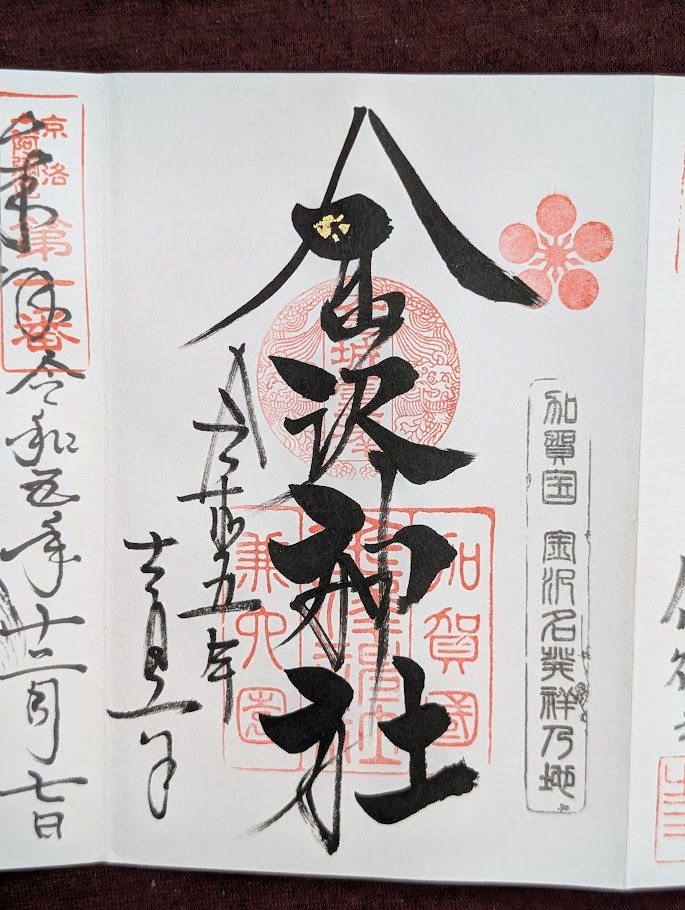 加賀国 金沢名発祥乃地
金沢神社
金城霊澤
加賀國
金澤神社
兼六園
令和五年
十二月
京洛
奉拝
令和五年十二月七日